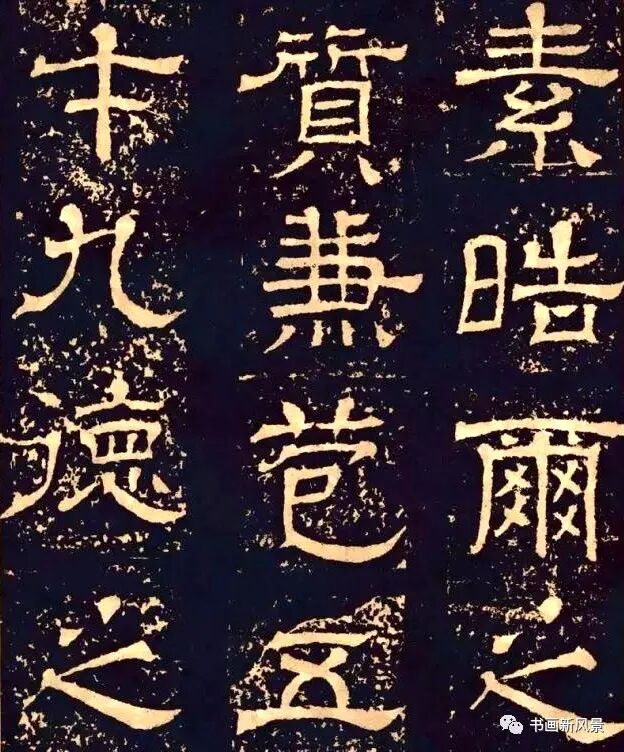 素晧爾之
質兼苞五
才九德之
书画新风景